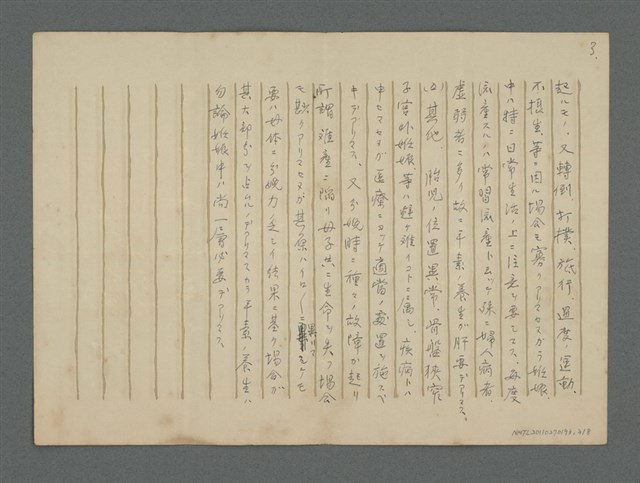 3.
起ルモノ、又轉倒、打撲、旅行、過度ノ運動、
不摂生、等ニ因ル場合モ寡クアリマセヌカラ妊娠
中ハ特ニ日常生活ノ上ニ注意ヲ要シマス。毎度
流産スルハ常習流産ト云ツテ殊ニ婦人病者、
虚弱者ニ多イ故ニ平素ノ養生ガ肝要デアリマス。
其他、胎児ノ位置異常、骨盤狭窄、
子宮外妊娠等ハ避ケ難イコトニ属シ、疾病トハ
申セマセヌガ医療ニヨッテ適當ノ処置ヲ施スベ
キデアリマス。又分娩時ニ種々ノ故障ガ起リ
所謂難産ニ陥リ母子共ニ生命ヲ失フ場合
モ尠クアリマセヌガ其原ハイロ〱ニ異リマスケレモ
要ハ母体ニ分娩力ノ乏シイ結果ニ基ク場合ガ
其大部分ヲ占ムルノデアリマスカラ平素ノ養生ハ
勿論妊娠中ハ尚一層必要デアリマス。